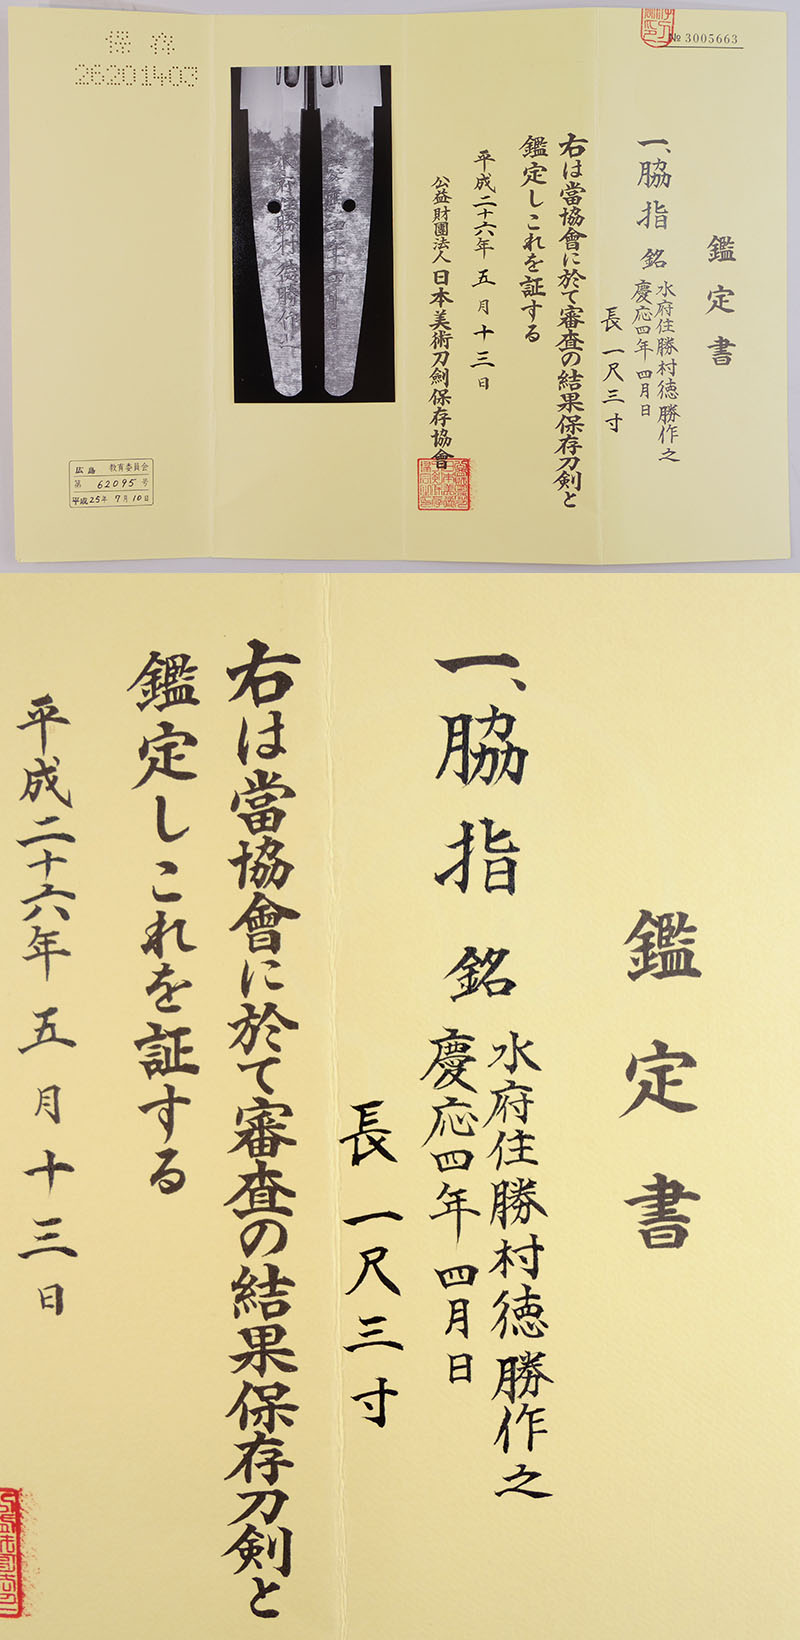 № 3005663
鑑定書
一、脇指 銘 水府住勝村徳勝作之
慶応四年四月日
長一尺三寸
右は當協會に於て審査の結果保存刀剣と
鑑定しこれを証する
平成二十六年五月十三日
公益財團法人日本美術刀劍保存協會
水府住勝村徳勝作之
保存
26201403
広島 教育委員会
第 62095 号
平成25年7月10日
鑑定書
一、脇指 銘 水府住勝村徳勝作之
慶応四年四月日
長一尺三寸
右は當協會に於て審査の結果保存刀剣と
鑑定しこれを証する
平成二十六年五月十三日